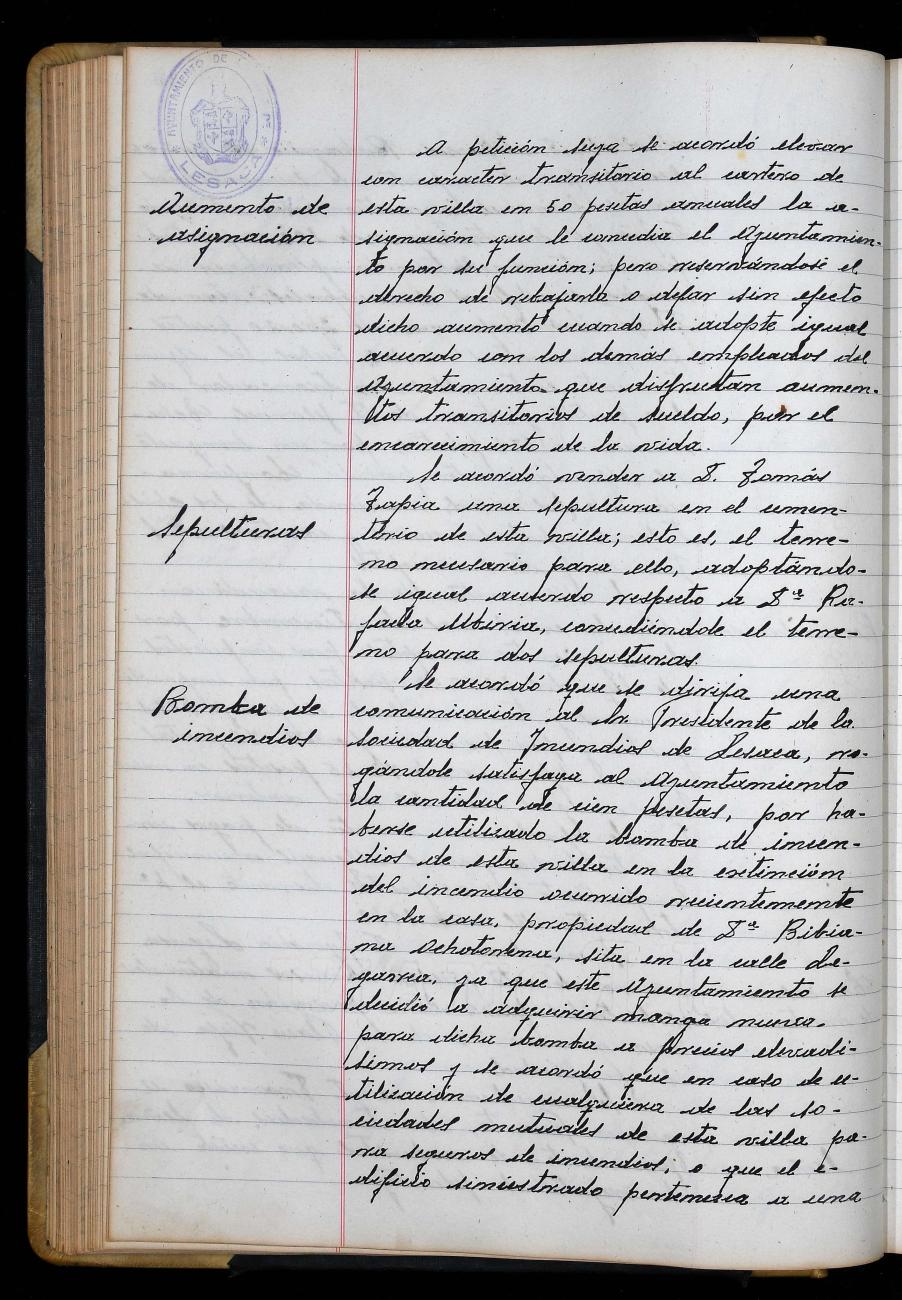 AYUNTAMIENTO DE
LESACA
A petición suya se acordó elevar
con caracter transitorio al cartero de
Aumento de
asignación
esta villa en 50 pesetas anuales la a-
signación que le concedia el Ayuntamien-
to por su función; pero reservándose el
derecho de rebajarla o dejar sin efecto
dicho aumento cuando se adopte igual
acuerdo con los demás empleados del
Ayuntamiento que disfrutan aumen-
tos transitorios de sueldo, por el
encarecimiento de la vida.
Sepulturas
Se acordó vender a D. Tomás
Tapia una sepultura en el cemen-
terio de esta villa; esto es, el terre-
no necesario para ello, adoptándo-
se igual acuerdo respecto a Dª Ra-
faela Ubiria, concediéndole el terre-
no para dos sepulturas.
Bomba de
incendios
Se acordó que se dirija una
comunicación al Sr. Presidente de la
Sociedad de Incendios de Lesaca, ro-
gándole satisfaga al Ayuntamiento
la cantidad de cien pesetas, por ha-
berse utilizado la bomba de incen-
dios de esta villa en la extinción
del incendio ocurrido recientemente
en la casa, propiedad de Dª Bibia-
na Ochotorena, sita en la calle Le-
garrea, ya que este Ayuntamiento se
decidió a adquirir manga nueva
para dicha bomba a precios elevadí-
simos y se acordó que en caso de u-
tilización de cualquiera de las so-
ciedades mutuales de esta villa pa-
ra seguros de incendios; o que el e-
dificio siniestrado pertenezca a una